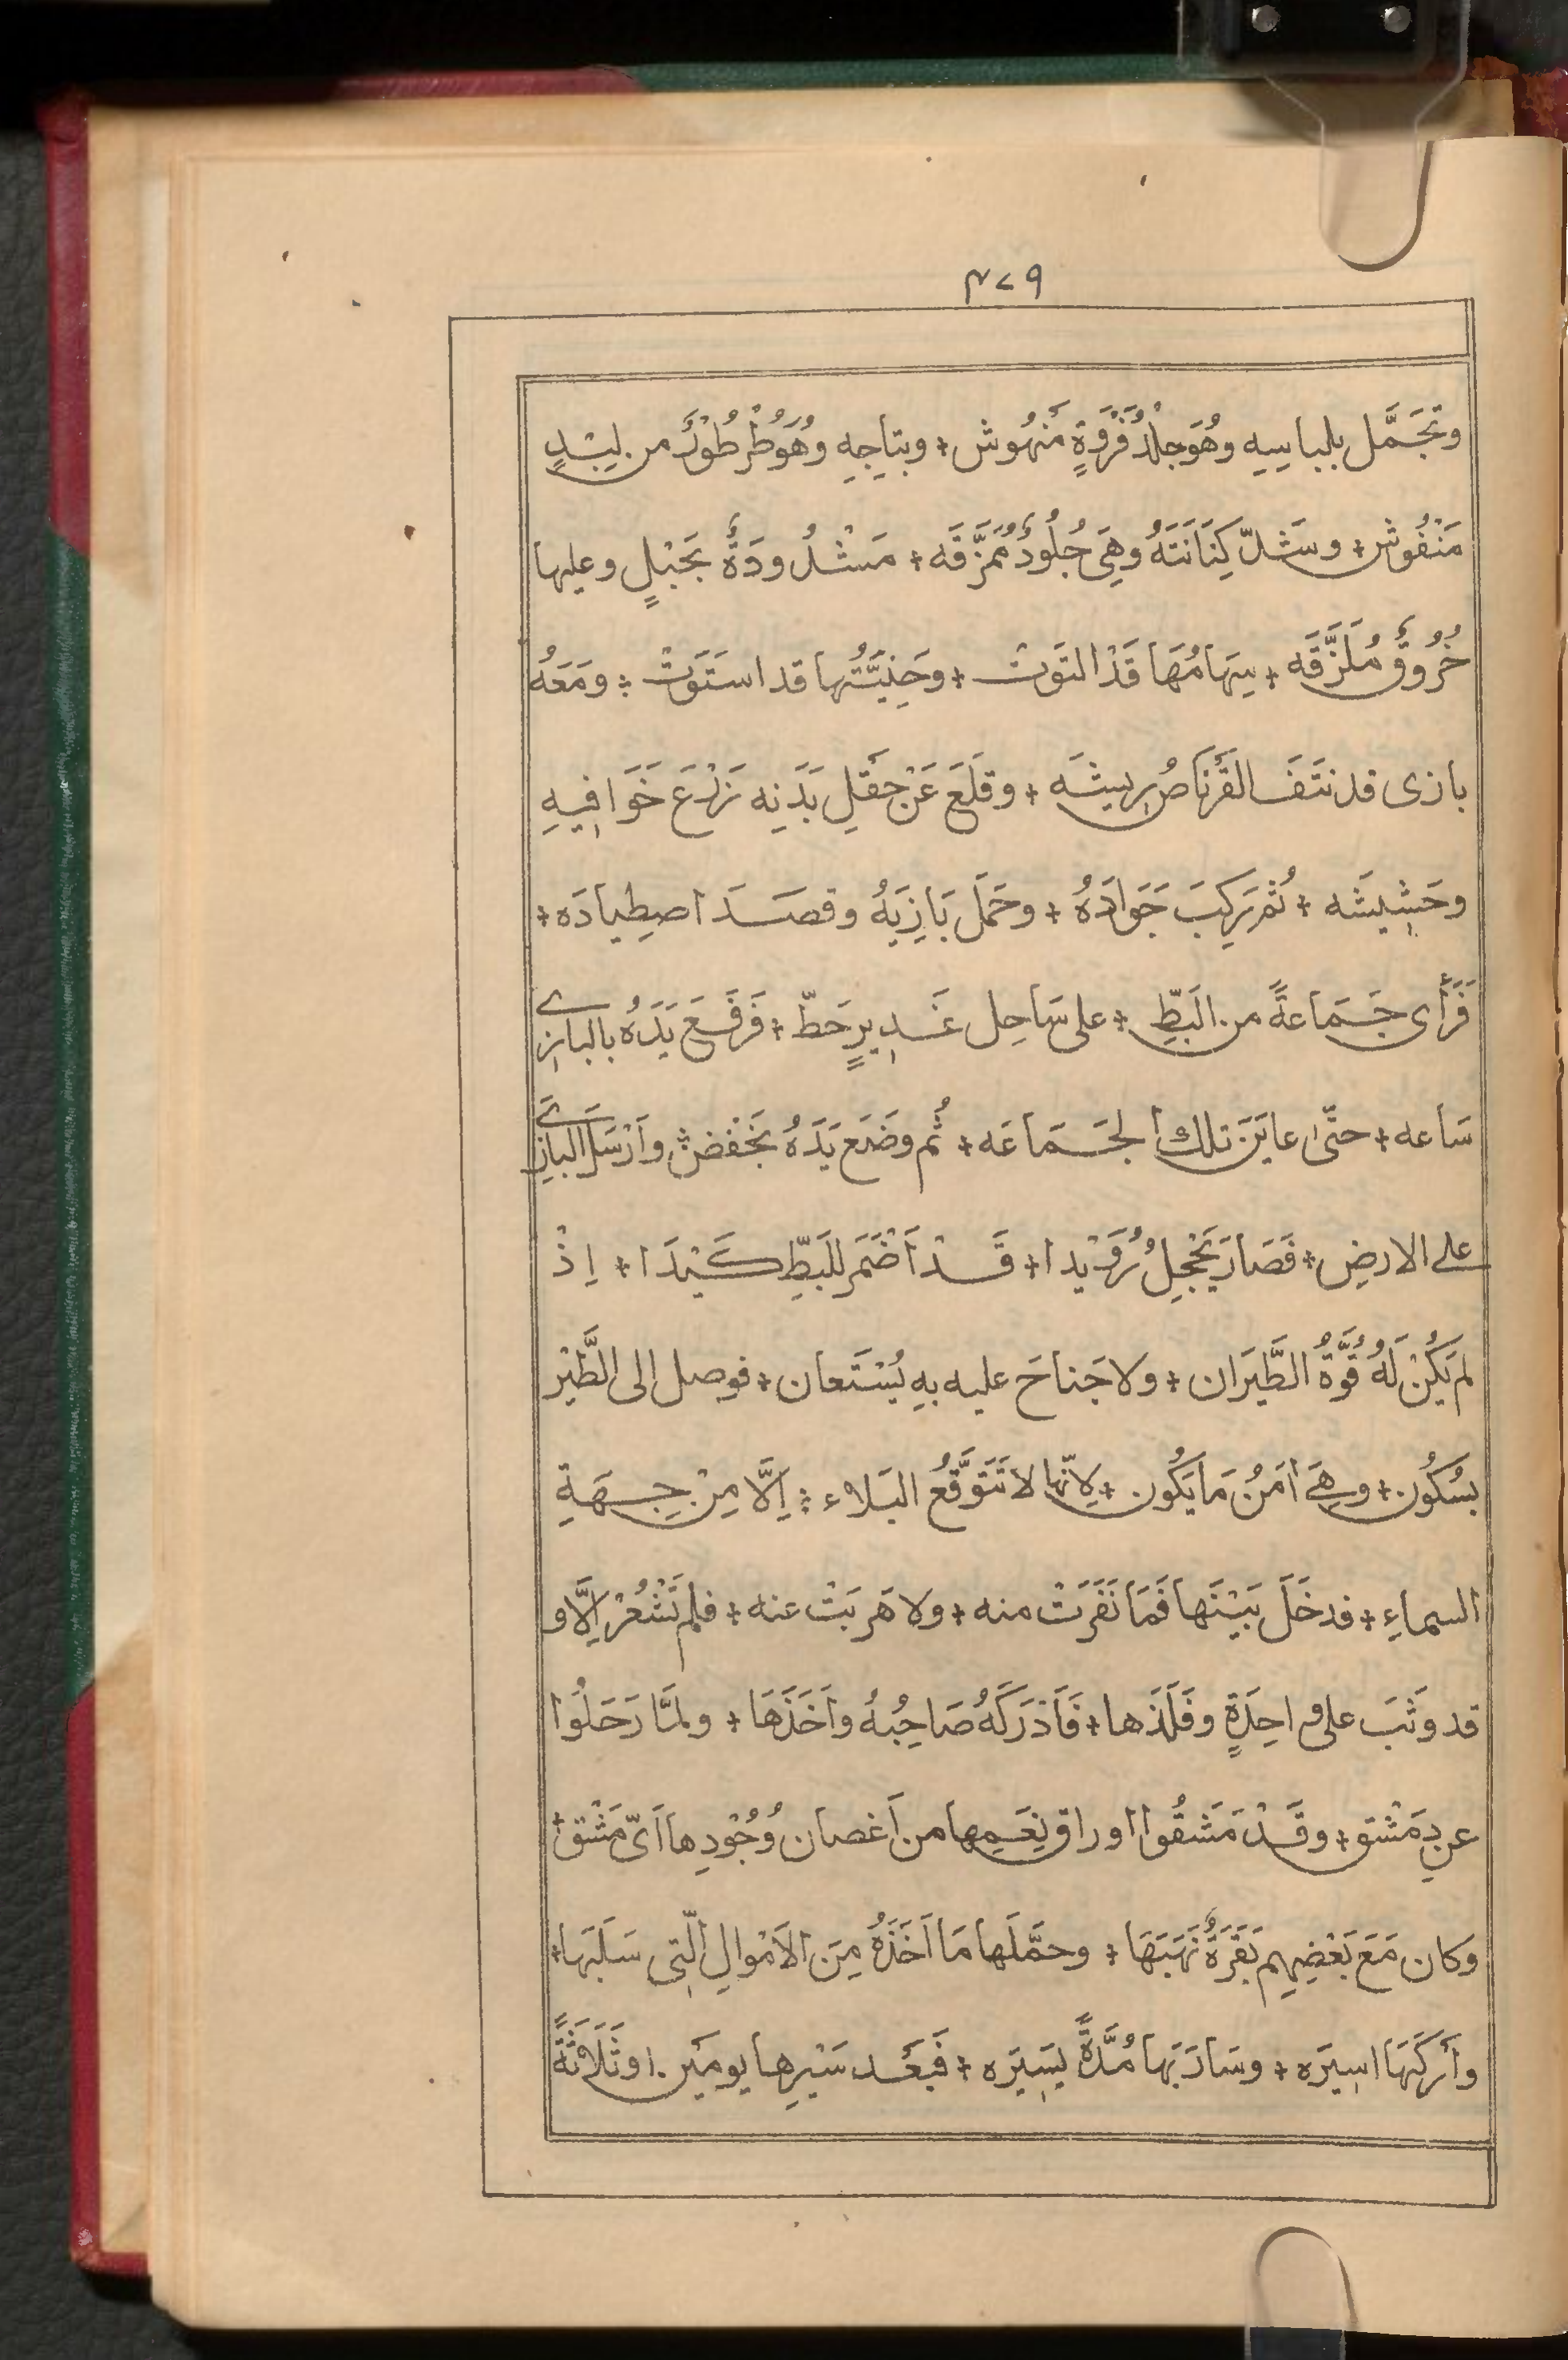 ٤٧٩
وتَجَمَّل بلباسِهِ وهُوَ جِلْدُ فَرْوَةٍ مَنهُوش + وبتاجِهِ وهُوَ طُرْطُوْرٌ من لِبْدٍ
مَنْفُوش + وسَدّ كِنَانَتَهُ وهِيَ جُلُودٌ مُمَزَّقَه + مَشْدُودَةٌ بحَبْلٍ وعليها
خُرُوقٌ مُلَزَّقَه + سِهَامُهَا قَدْ التَوَتْ + وحَنِيَّتُها قد استَوَتْ + ومَعَهُ
بازى قد نَتَفَ القَرْنَاصُ رِيشَه + وقلَعَ عَنْ حَقلِ بَدَنِه زَرْعَ خَوَافِيهِ
وحَشِيشَه + ثُم رَكِبَ جَوَادَهُ + وحَمَلَ بَازِيَهُ وقصَدَ اصطِيادَه +
فَرَأَى جَمَاعةً من البَطِّ + على سَاحِل غَدِيرٍ حَطّ + فَرَفَعَ يَدَهُ بالبازِى
سَاعه + حتّى عايَنَ تلك الجَمَاعَه + ثُم وضَع يَدَهُ بخَفْضٍ وأَرْسَلَ البازِىَ
على الارضِ + فَصَارَ يَحْجِلُ رُوَيْدا + قَدْ اَضْمَر للبَطِّ كَيْدَا + اِذْ
لم يَكُنْ لَهُ قُوَّةُ الطَّيَرَان + ولا جَناحَ عليه بِهِ يُسْتَعان + فوصل الى الطَّيْر
بسُكُون + وهِىَ اٰمَنُ مَا يَكُون + لِانّها لا تَتَوَقَّعُ البَلاء + اِلَّا مِنْ جِهَةِ
السماءِ + فدخَلَ بَيْنَها فَمَا نَفَرَتْ منه + ولا هَرَبَتْ عنه + فلم تَشْعُرْ اِلَّا و
قد وَثَبَ على واحِدَةٍ وفَلَذَها + فَاَدْرَكَهُ صَاحِبُهُ واَخَذَهَا + ولمَّا رَحَلُوا
عن دِمَشْق + وقَدْ مَشَقُوا اوراق نِعَمِها من اَغصان وُجُوْدِها اَىّ مَشْق +
وَكان مَعَ بَعْضِهِم بَقَرَةٌ نَهَبَهَا + وحمَّلَها مَا اَخَذَهُ مِنَ الاَمْوالِ الّتِى سَلَبَها +
وأَرْكَبَهَا اسِيرَه + وسَارَ بَها مُدَّةً يسِيرَه + فَبَعْد سَيْرِها يومَين او ثَلَاثَةً